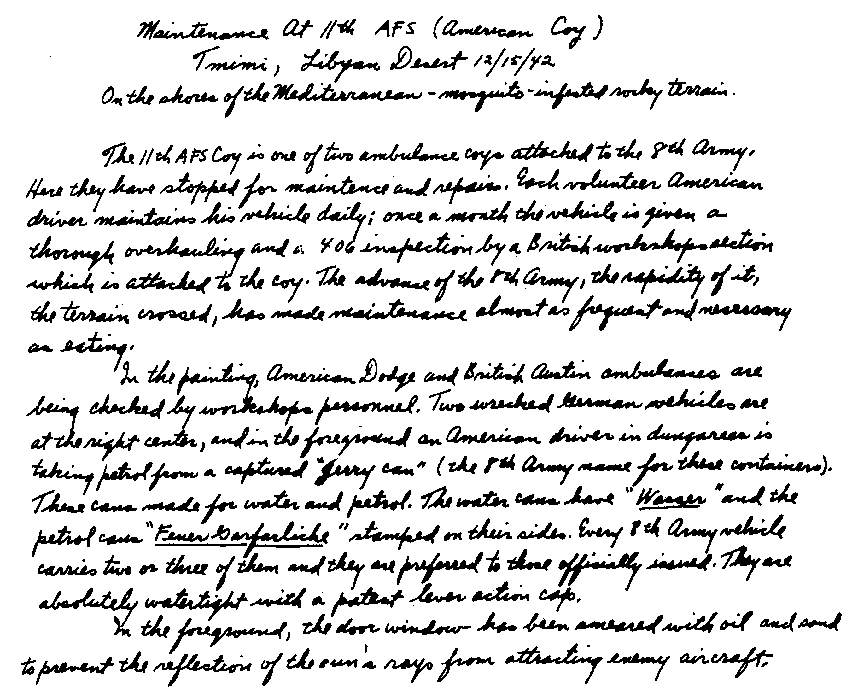 Maintenance At 11th AFS (American Coy)
Tmimi, Libyan Desert 12/15/42
On the shores of the Mediterranean - mosquito-infested rocky terrain.
The 11th AFS Coy is one of two ambulance coys attached to the 8th Army.
Here they have stopped for maintence and repairs. Each volunteer American
driver maintains his vehicle daily; once a month the vehicle is given a
thorough overhauling and a 406 inspection by a British workshops section
which is attached to the coy. The advance of the 8th Army, the rapidity of it,
the terrain crossed, has made maintenance almost as frequent and necessary
as eating.
In the painting, American Dodge and British Austin ambulances are
being checked by workshops personnel. Two wrecked German vehicles are
at the right center, and in the foreground an American driver in dungarees is
taking petrol from a captured "Jerry can" (the 8th Army name for these containers).
These cans made for water and petrol. The water cans have "Wasser" and the
petrol cans "Feuer Garfarliche" stamped on their sides. Every 8th Army vehicle
carries two or three of them and they are preferred to those officially issued. They are
absolutely watertight with a patent lever action cap.
In the foreground, the door window has been smeared with oil and sand
to prevent the reflection of the sun's rays from attracting enemy aircraft.